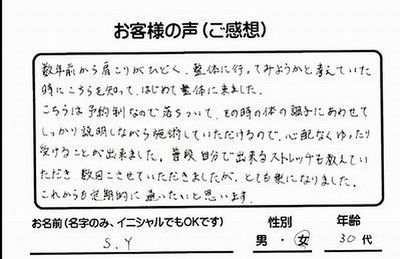 お客様の声(ご感想)
数年前から肩こりがひどく、整体に行ってみようかと考えていた
時にこちらを知って、はじめて整体に来ました。
こちらは予約制なので落ちついて、その時の体の調子にあわせて
しっかり説明しながら施術していただけるので、心配なくゆったり
受けることが出来ました。普段自分で出来るストレッチも教えてい
ただき、数回こさせていただきましたが、とても楽になりました。
これからも定期的に通いたいと思います。
お名前(名字のみ、イニシャルでもOKです) 性別 年齢
S.Y 男・女 30代